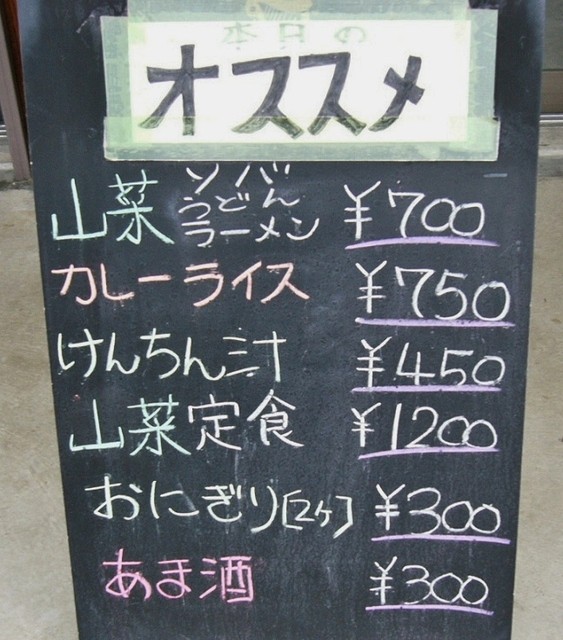 本日の
オススメ
山菜 ソバ うどん ラーメン ¥700
カレーライス ¥750
けんちん汁 ¥450
山菜定食 ¥1200
おにぎり[2ヶ] ¥300
あま酒 ¥300